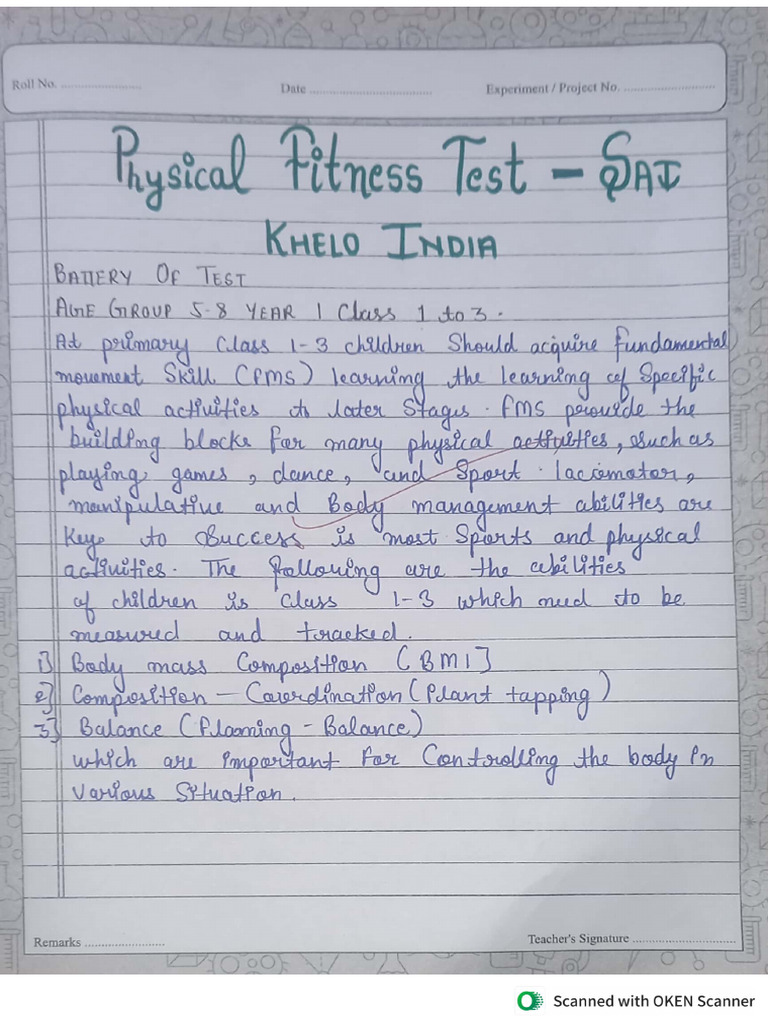 Roll No. ........................ Date ........................ Experiment / Project No. ........................
Physical Fitness Test - SAI
KHELO INDIA
BATTERY OF TEST
AGE GROUP 5-8 YEAR | Class 1 to 3.
At primary Class 1-3 children Should acquire fundamental
movement Skill (FMS) learning the learning of Specific
physical activities to later Stages. FMS provide the
building blocks for many physical activities, such as
playing games, dance, and Sport. locomotor,
manipulative and Body management abilities are
Key to Success is most Sports and physical
activities. The following are the abilities
of children is Class 1-3 which need to be
measured and tracked.
1) Body mass Composition (BMI]
2) Composition - Coordination (Plant tapping)
3) Balance (Flaming - Balance)
which are important for Controlling the body in
Various Situation.
Remarks ........................ Teacher's Signature ........................
Scanned with OKEN Scanner